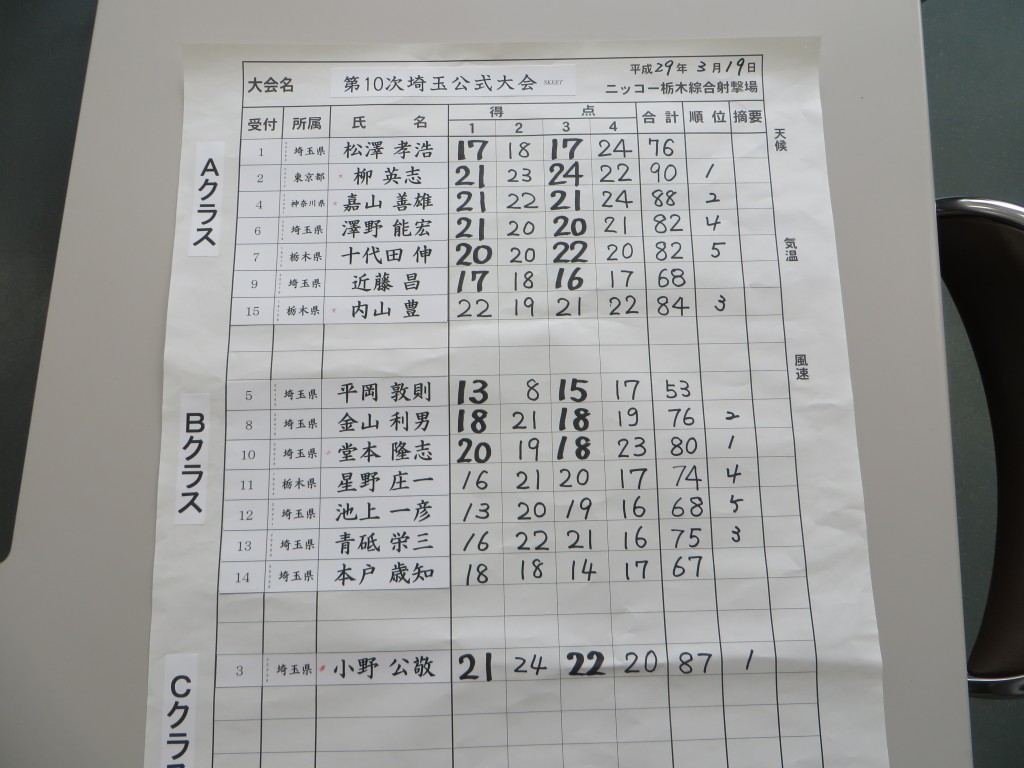 平成29年 3月19日
大会名 第10次埼玉公式大会 SKEET ニッコー栃木綜合射撃場
受付 所属 氏 名 得 点 合計 順位 摘要
1 2 3 4
天候
気温
風速
Aクラス
1 埼玉県 松澤 孝浩 17 18 17 24 76
2 東京都 柳 英志 21 23 24 22 90 1
4 神奈川県 嘉山 善雄 21 22 21 24 88 2
6 埼玉県 澤野 能宏 21 20 20 21 82 4
7 栃木県 十代田 伸 20 20 22 20 82 5
9 埼玉県 近藤 昌 17 18 16 17 68
15 栃木県 内山 豊 22 19 21 22 84 3
Bクラス
5 埼玉県 平岡 敦則 13 8 15 17 53
8 埼玉県 金山 利男 18 21 18 19 76 2
10 埼玉県 堂本 隆志 20 19 18 23 80 1
11 栃木県 星野 庄一 16 21 20 17 74 4
12 埼玉県 池上 一彦 13 20 19 16 68 5
13 埼玉県 青砥 栄三 16 22 21 16 75 3
14 埼玉県 本戸 歳知 18 18 14 17 67
Cクラス
3 埼玉県 小野 公敬 21 24 22 20 87 1